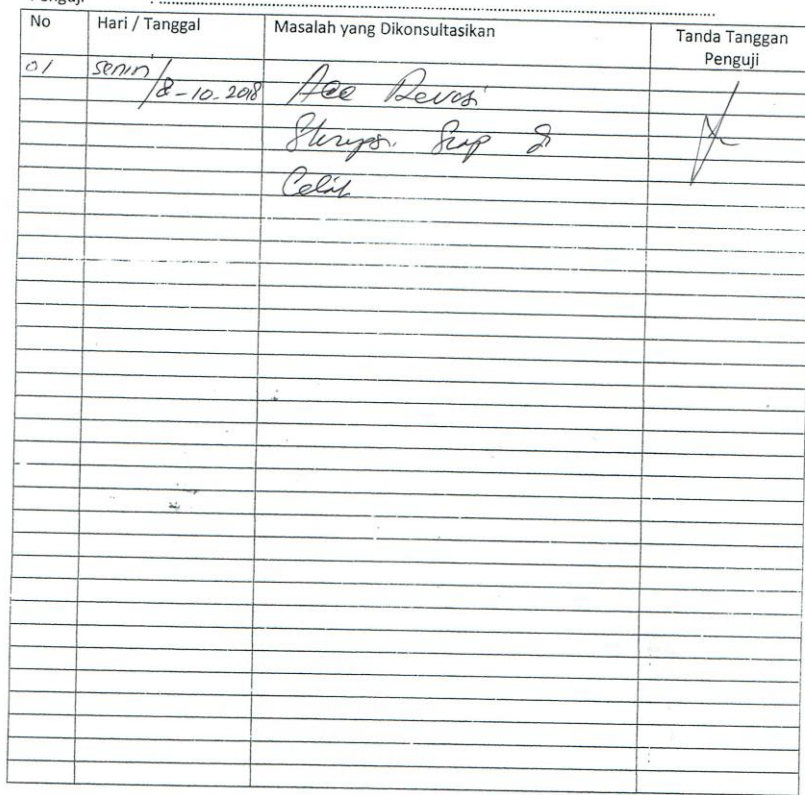 No Hari / Tanggal Masalah yang Dikonsultasikan Tanda Tanggan
Penguji
01 Senin/ 8-10-2018 Acc Revisi
Skripsi. Siap di
Cetak